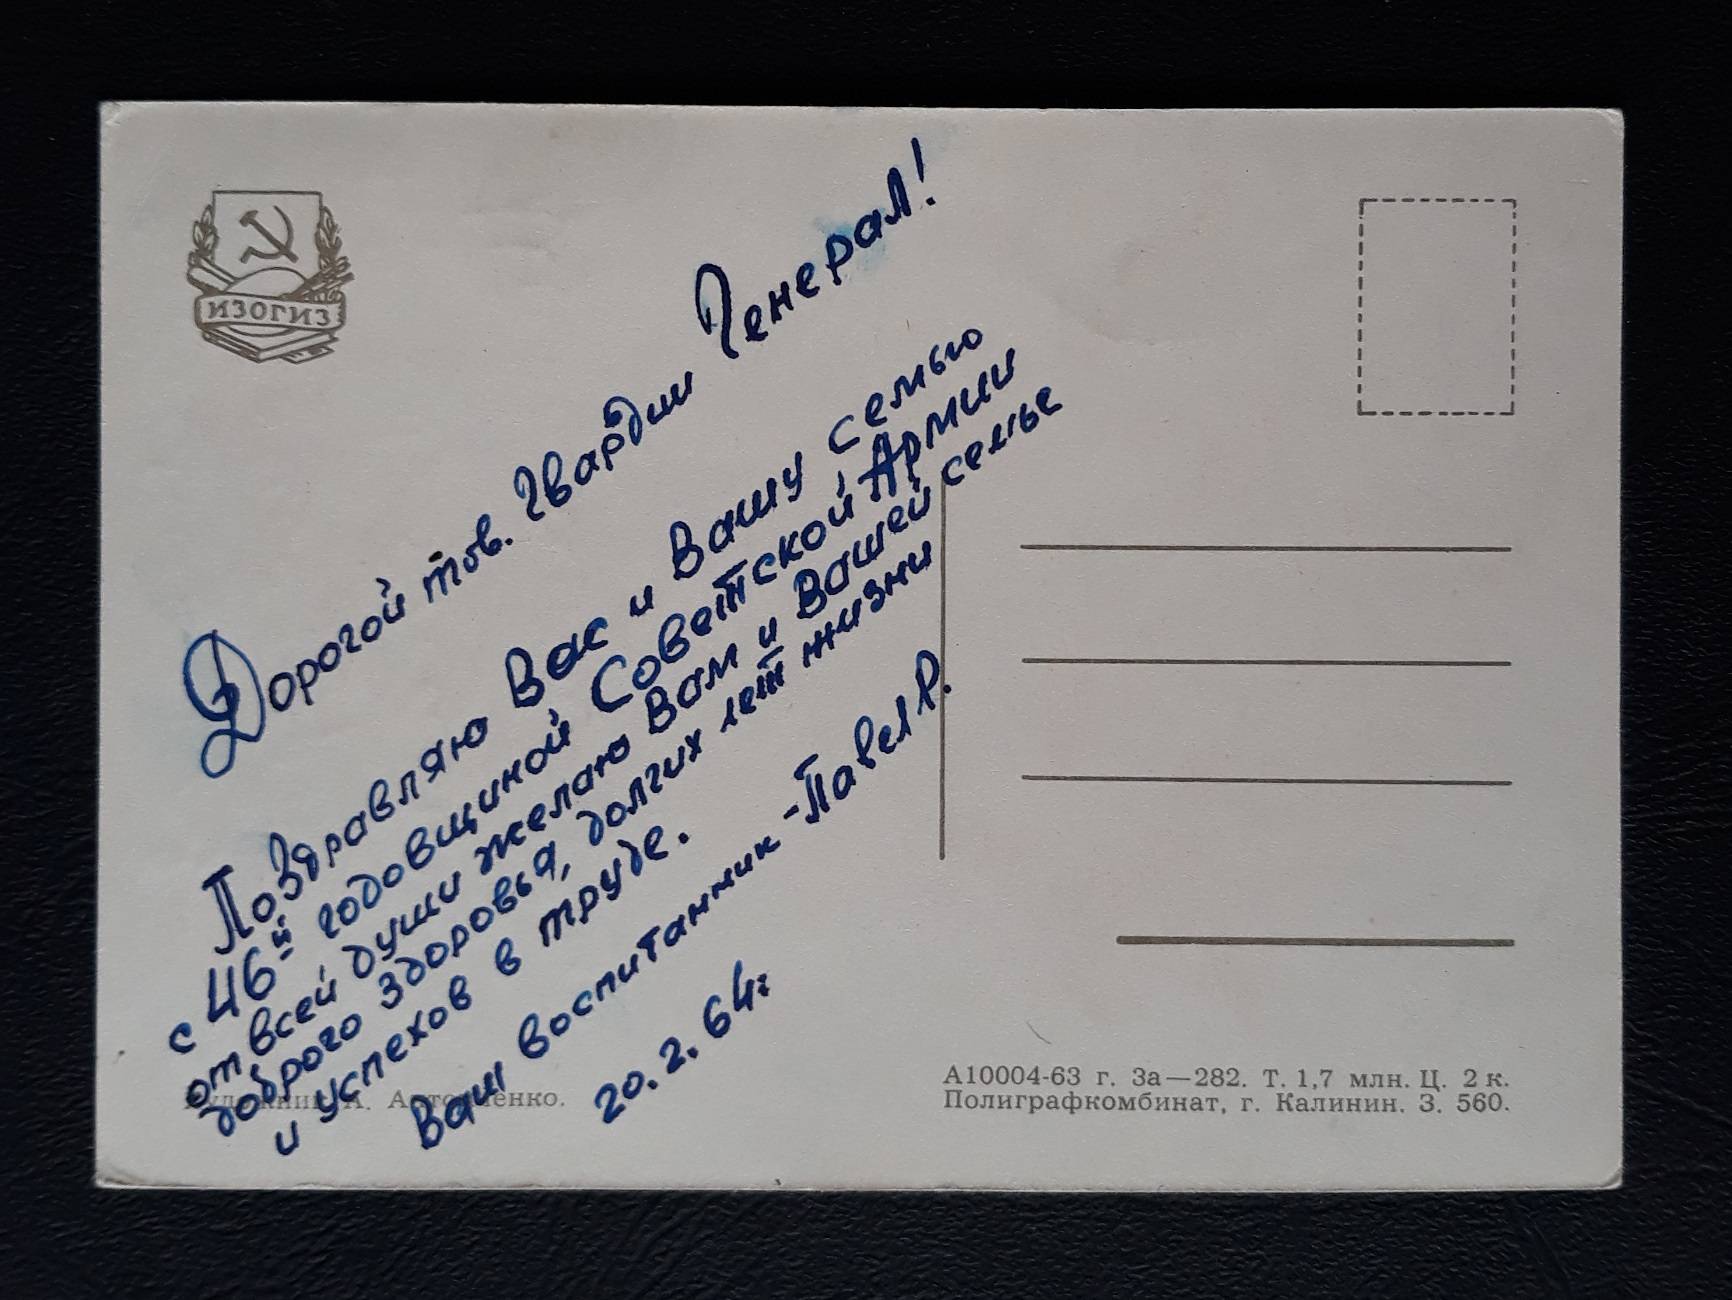 ИЗОГИЗ
Дорогой тов. Гвардии Генерал!
Поздравляю Вас и Вашу семью
с 46й годовщиной Советской Армии
от всей души желаю Вам и Вашей семье
доброго здоровья, долгих лет жизни
и успехов в труде.
Ваш воспитанник - Павел Р.
20.2.64г
А10004-63 г. За—282. Т. 1,7 млн. Ц. 2 к.
Полиграфкомбинат, г. Калинин. З. 560.